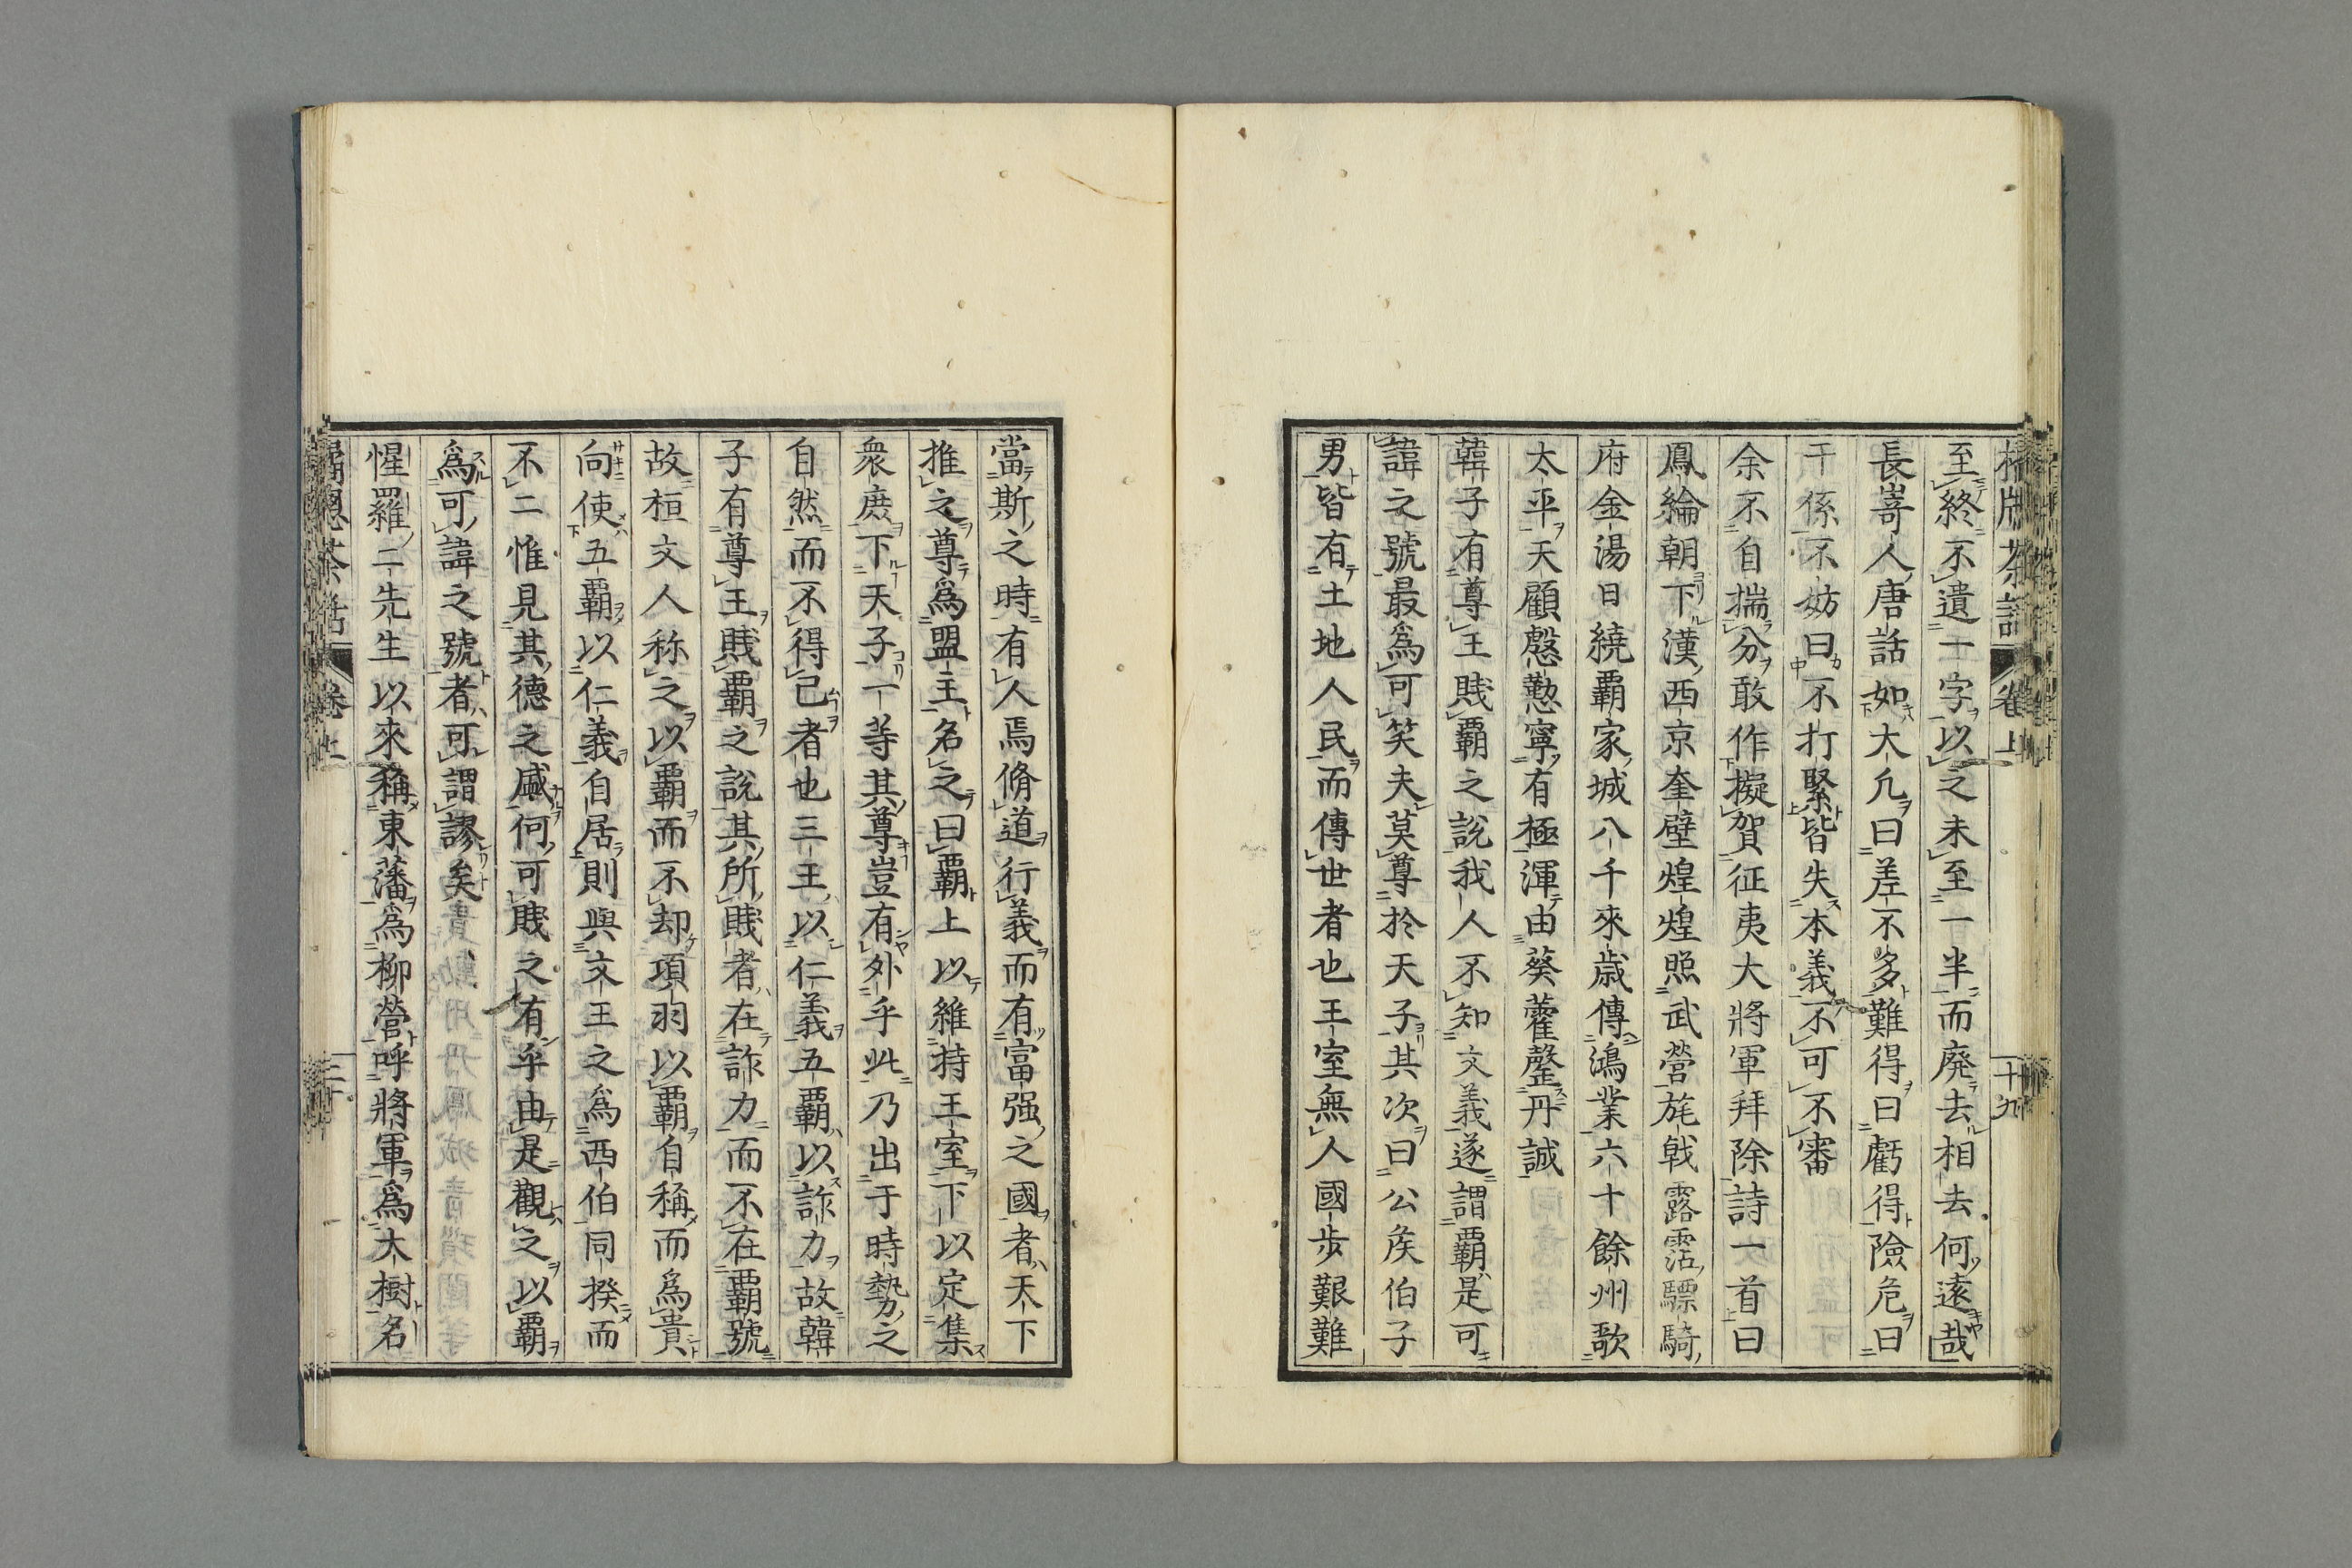 至終不遺一字以之未至一半而廃去相去何遠哉
長嵜人唐話如大凢曰差不多難得曰虧得險危曰
干係不妨曰不打緊皆失本義不可不審
余不自揣分敢作擬賀征夷大將軍拜除詩一首曰
鳳綸朝下漢西京奎壁煌煌照武營旄戟露霑驃騎
府金湯日繞覇家城八千來歲傳鴻業六十餘州歌
太平天顧慇懃寧有極渾由葵藿罄丹誠
韓子有尊王賤覇之說我人不知文義遂謂覇是可
諱之號最爲可笑夫莫尊於天子其次曰公矦伯子
男皆有土地人民而傳世者也王室無人國歩艱難
當斯之時有人焉脩道行義而有富强之國者天下
推之尊爲盟主名之曰覇上以維持王室下以定集
衆庶下天子一等其尊豈有外乎此乃出于時勢之
自然而不得已者也三王以仁義五覇以詐力故韓
子有尊王賤覇之說其所賤者在詐力而不在覇號
故桓文人称之以覇而不却項羽以覇自稱而爲貴
向使五覇以仁義自居則與文王之爲西伯同揆而
不二惟見其德之盛何可賤之有乎由是觀之以覇
爲可諱之號者可謂謬矣
惺羅二先生以來稱東藩爲柳營呼將軍爲大樹名
茶話 卷上 十九
茶話 卷上